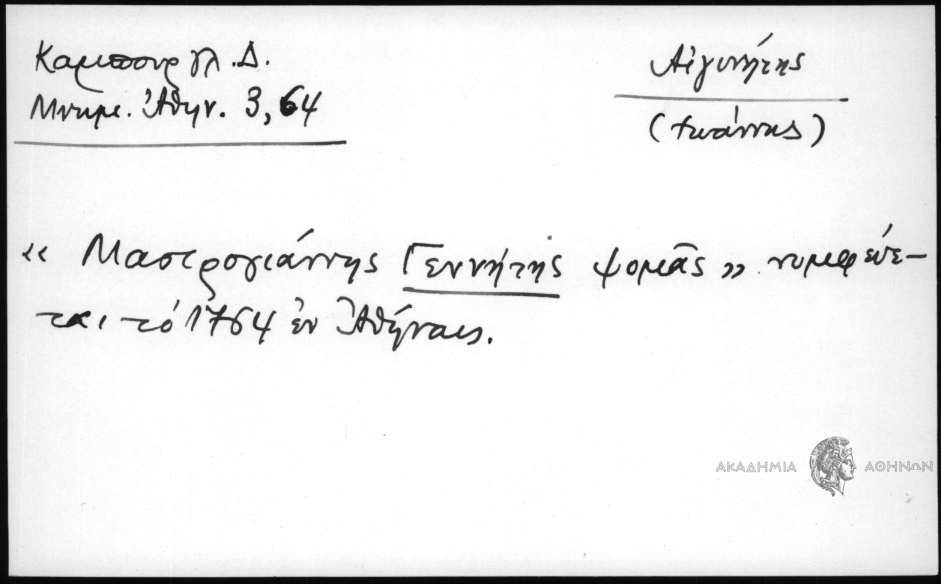 Καμπουρογλ. Δ.
Μνημ. Ἀθην. 3, 64
Αἰγινήτης
(Ἰωάννης)
« Μαστρογιάννης Γεννήτης ψομᾶς » νυμφεύε-
ται τὸ 1764 ἐν Ἀθήναις.
ΑΚΑΔΗΜΙΑ ΑΘΗΝΩΝ